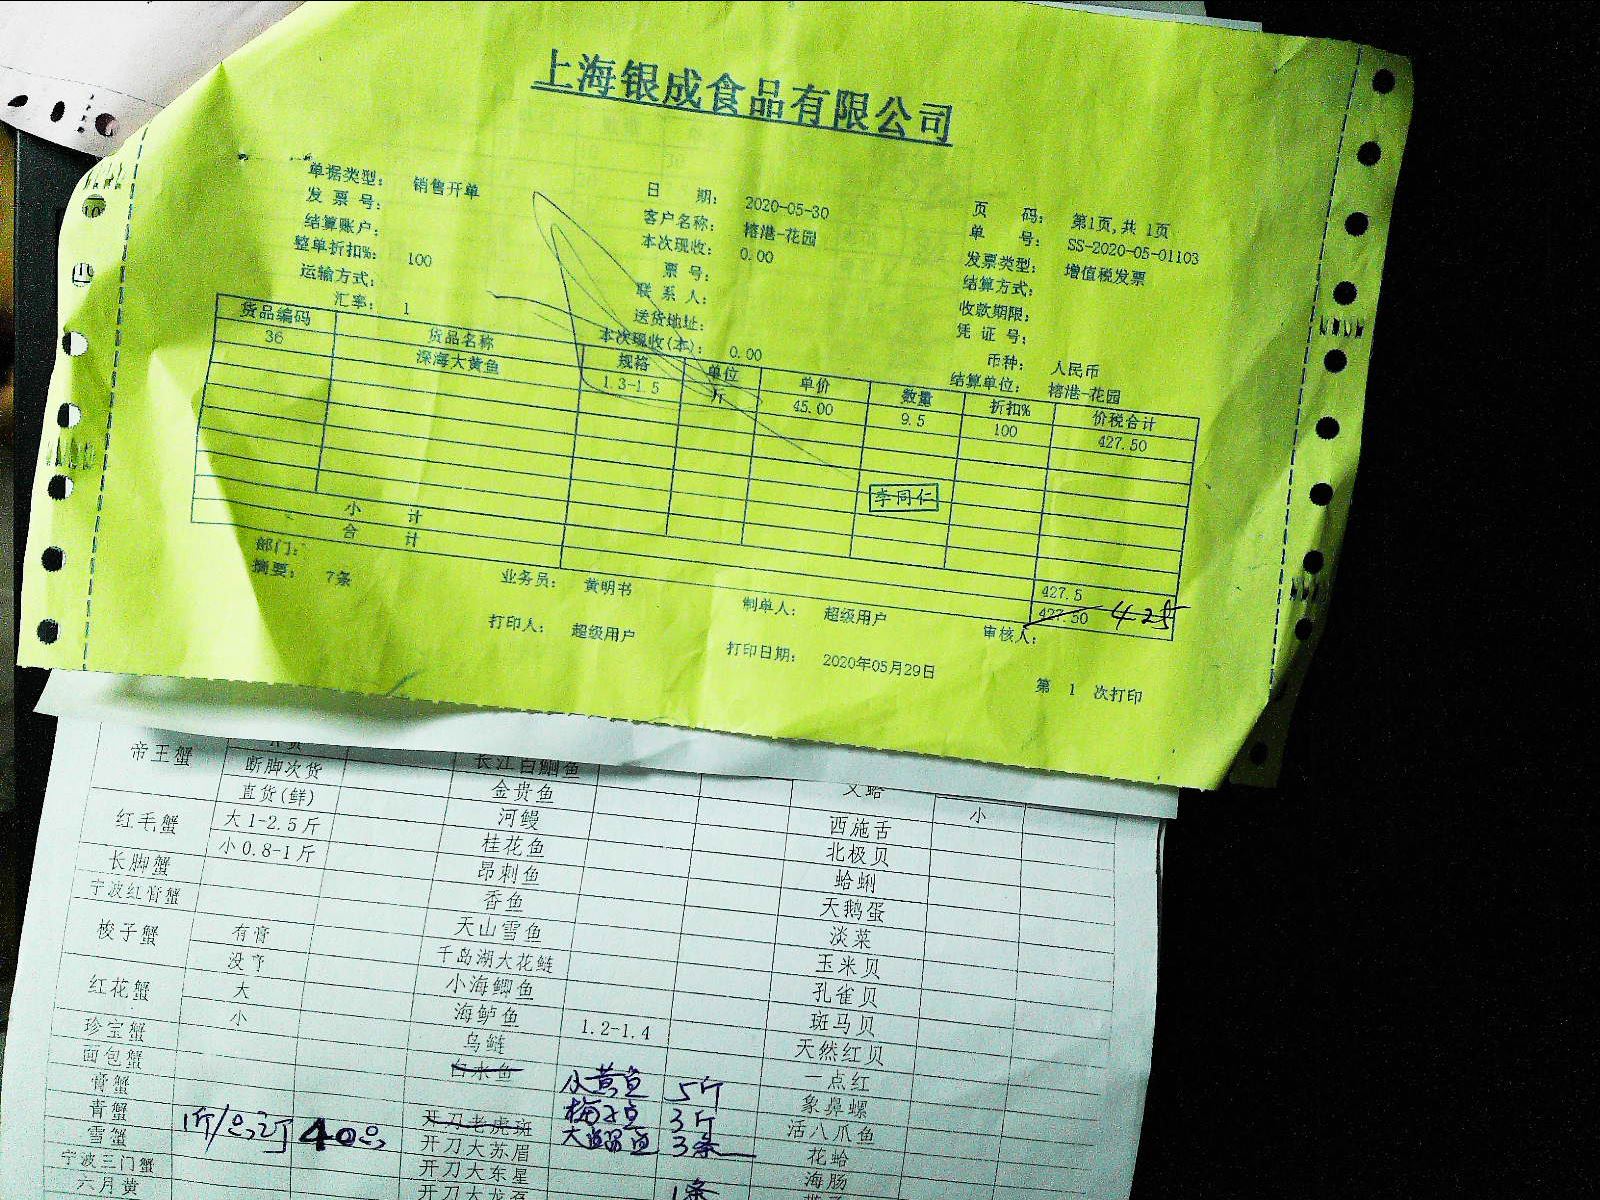 上海银成食品有限公司
单据类型: 销售开单 日 期: 2020-05-30 页 码: 第1页,共 1页
发 票 号: 客户名称: 榕港-花园 单 号: SS-2020-05-01103
结算账户: 本次现收: 0.00 发票类型: 增值税发票
整单折扣%: 100 票 号: 结算方式:
运输方式: 联 系 人: 收款期限:
汇率: 1 送货地址: 凭 证 号:
本次现收(本): 0.00 币种: 人民币
结算单位: 榕港-花园
货品编码 货品名称 规格 单位 单价 数量 折扣% 价税合计
36 深海大黄鱼 1.3-1.5 斤 45.00 9.5 100 427.50
李同仁
小 计 427.5
合 计 427.50 425
部门: 业务员: 黄明书 制单人: 超级用户 审核人:
摘要: 7条
打印人: 超级用户 打印日期: 2020年05月29日 第 1 次打印
帝王蟹 断脚次货 长江白鮰鱼
直货(鲜) 金贵鱼 小
红毛蟹 大1-2.5斤 河鳗 西施舌
小0.8-1斤 桂花鱼 北极贝
长脚蟹 昂刺鱼 蛤蜊
宁波红膏蟹 香鱼 天鹅蛋
梭子蟹 有膏 天山雪鱼 淡菜
没膏 千岛湖大花鲢 玉米贝
红花蟹 大 小海鲫鱼 孔雀贝
小 海鲈鱼 1.2-1.4 斑马贝
珍宝蟹 乌鲢 天然红贝
面包蟹 白水鱼 一点红
膏蟹 黄鱼 5斤 象鼻螺
青蟹 开刀老虎斑 3斤 活八爪鱼
雪蟹 开刀大苏眉 3条 花蛤
宁波三门蟹 开刀大东星 海肠
六月黄 1条